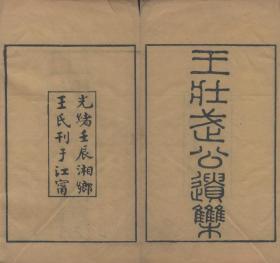 王壯武公遺集
光緒壬辰湘鄉
王氏刊于江甯